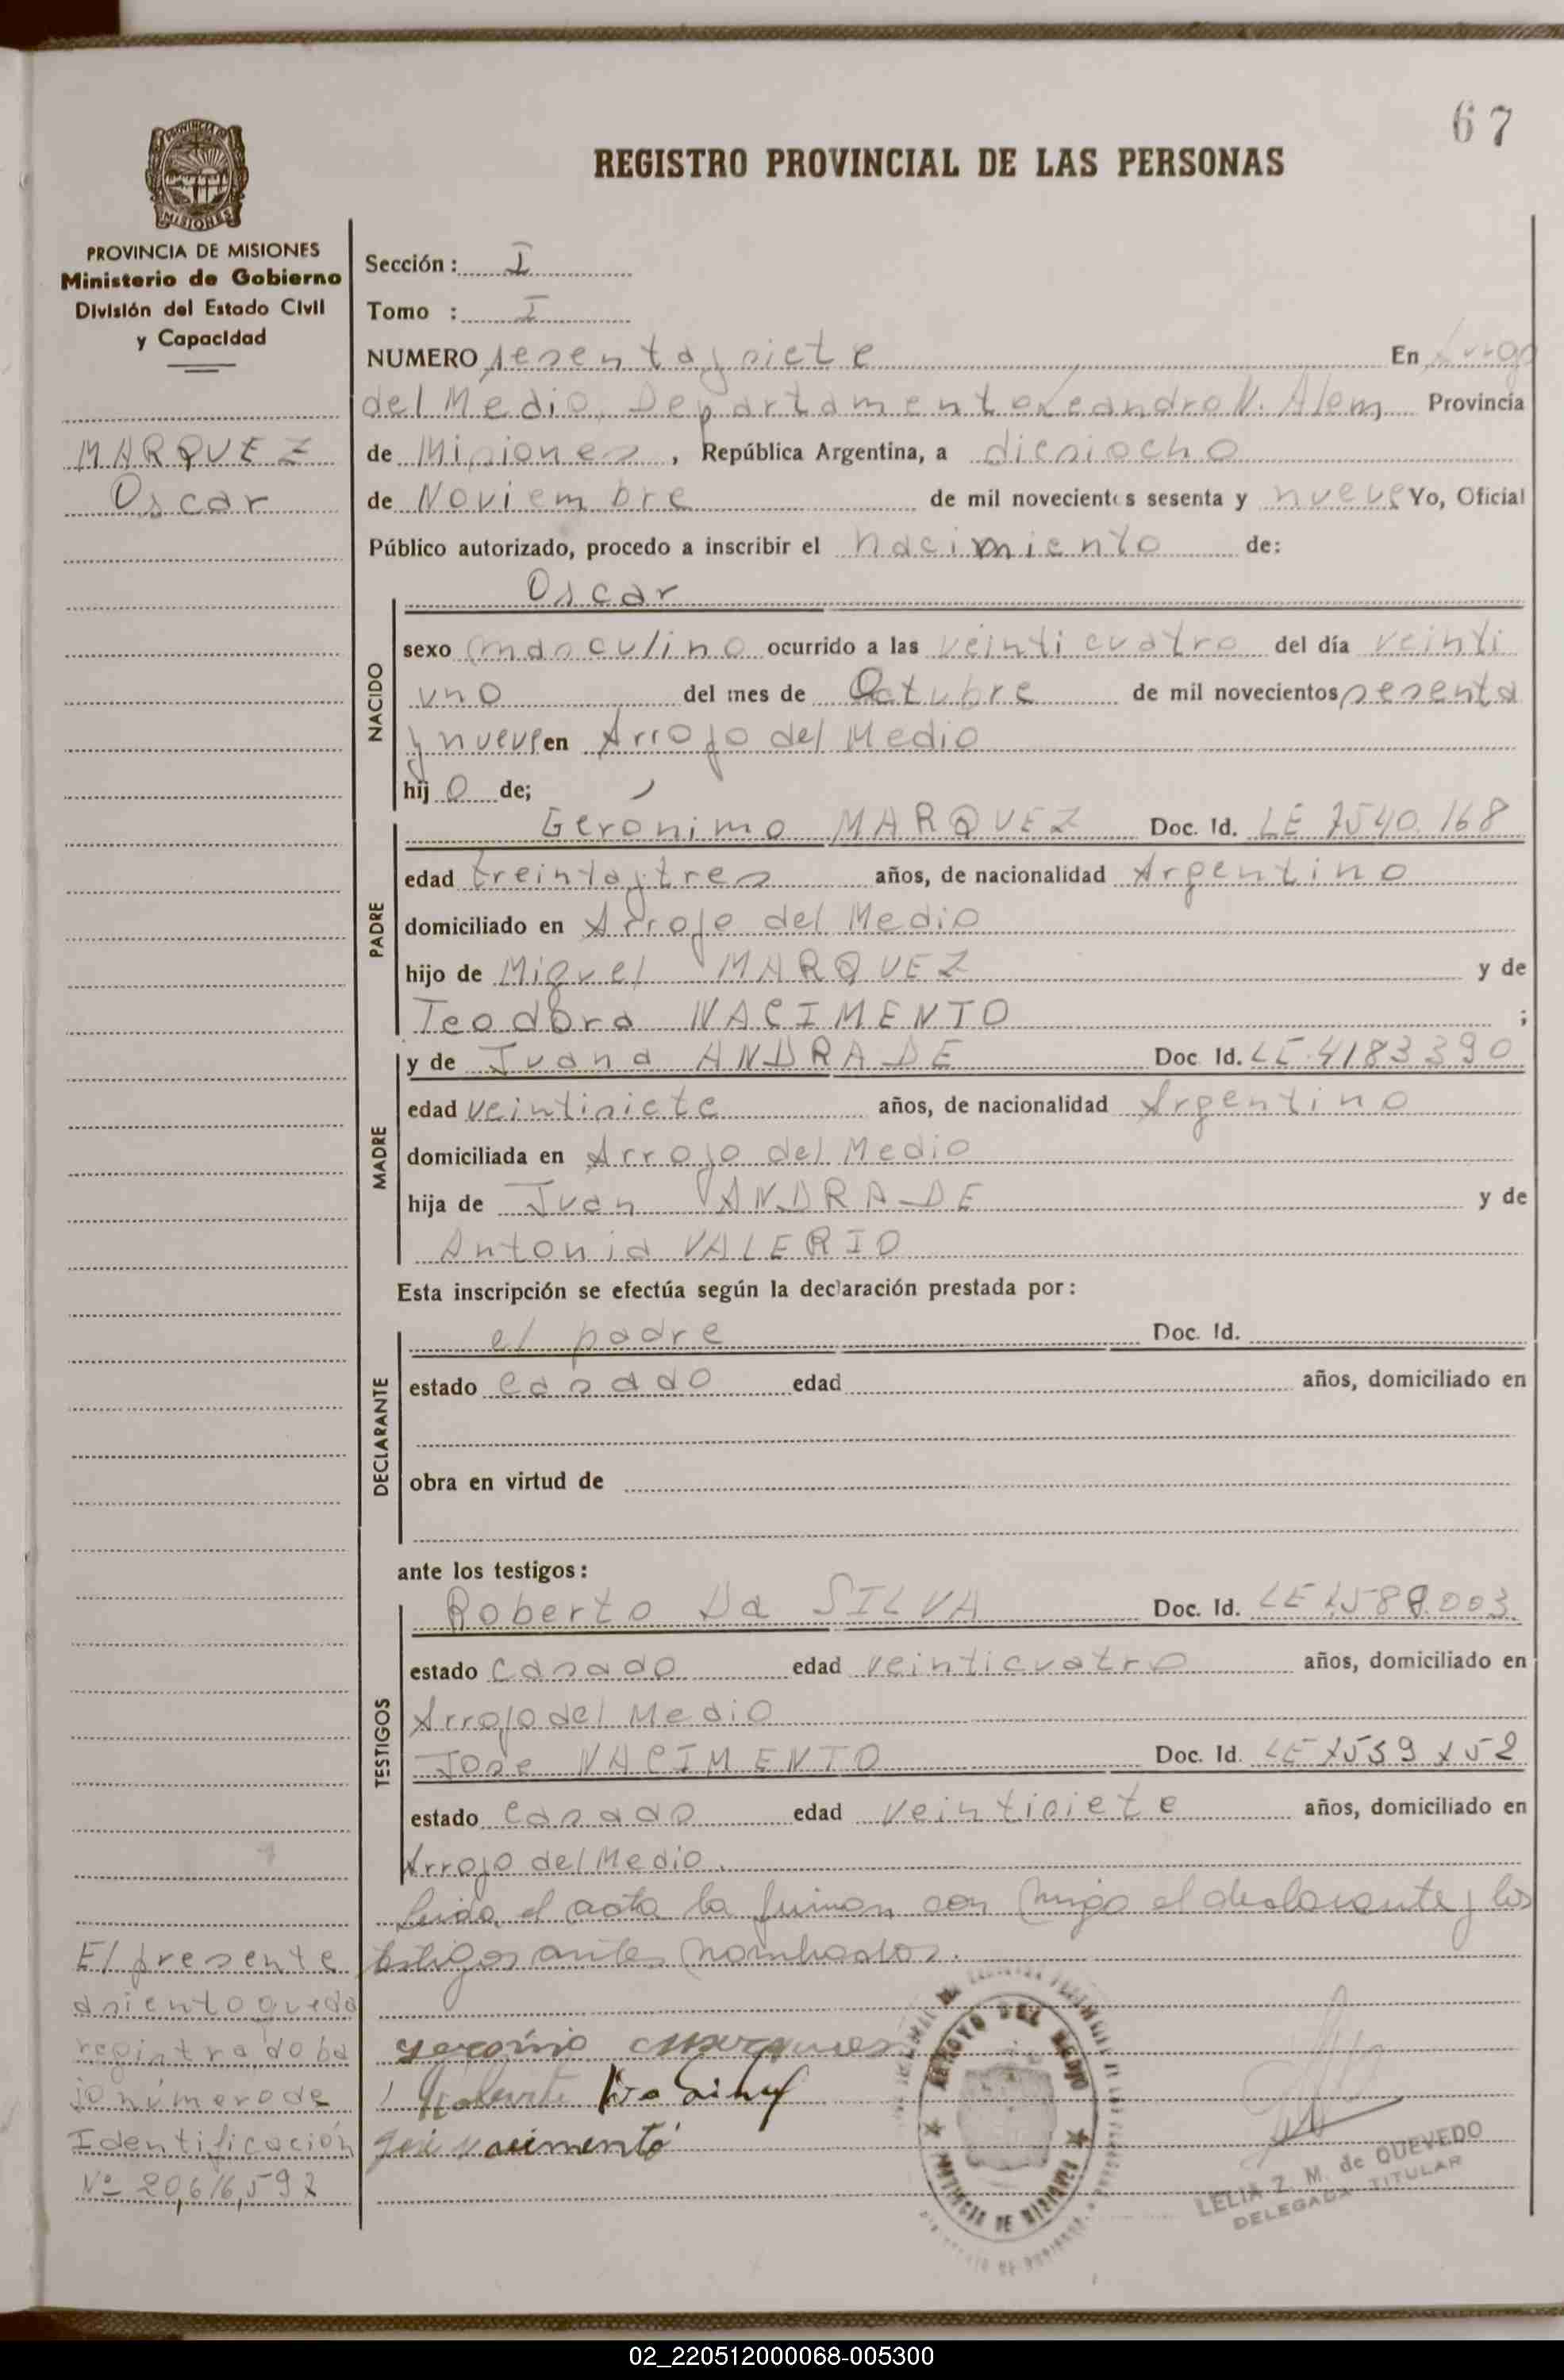 67
REGISTRO PROVINCIAL DE LAS PERSONAS
PROVINCIA DE
MISIONES
PROVINCIA DE MISIONES
Ministerio de Gobierno
División del Estado Civil
y Capacidad
MARQUEZ
Oscar
Sección: I
Tomo : I
NUMERO sesenta y siete En Arroyo
del Medio, Departamento Leandro N. Alem Provincia
de Misiones, República Argentina, a diesiocho
de Noviembre de mil novecientos sesenta y nueve Yo, Oficial
Público autorizado, procedo a inscribir el nacimiento de:
NACIDO
Oscar
sexo masculino ocurrido a las veinticuatro del día veinti
uno del mes de Octubre de mil novecientos sesenta
y nueve en Arroyo del Medio
hijo de;
PADRE
Gerónimo MARQUEZ Doc. Id. LE 7540.168
edad treinta y tres años, de nacionalidad Argentino
domiciliado en Arroyo del Medio
hijo de Miguel MARQUEZ y de
Teodora NACIMENTO ;
MADRE
y de Juana ANDRADE Doc. Id. LE.4183390
edad veintisiete años, de nacionalidad Argentino
domiciliada en Arroyo del Medio
hija de Juan ANDRADE y de
Antonia VALERIO
Esta inscripción se efectúa según la declaración prestada por:
DECLARANTE
el padre Doc. Id.
estado casado edad años, domiciliado en
obra en virtud de
ante los testigos:
TESTIGOS
Roberto Da SILVA Doc. Id. LE
estado casado edad veinticuatro años, domiciliado en
Arroyo del Medio
Jose NACIMENTO Doc. Id. LE
estado casado edad veintisiete años, domiciliado en
Arroyo del Medio.
Leida el acta la firman con migo el declarante y los
testigos antes nombrados.
El presente
asiento queda
registrado ba
jo número de
Identificación
Nº 20,616,597
ARROYO DEL MEDIO
PROVINCIA DE MISIONES
LELIA Z. M. de QUEVEDO
DELEGADA TITULAR
02_220512000068-005300